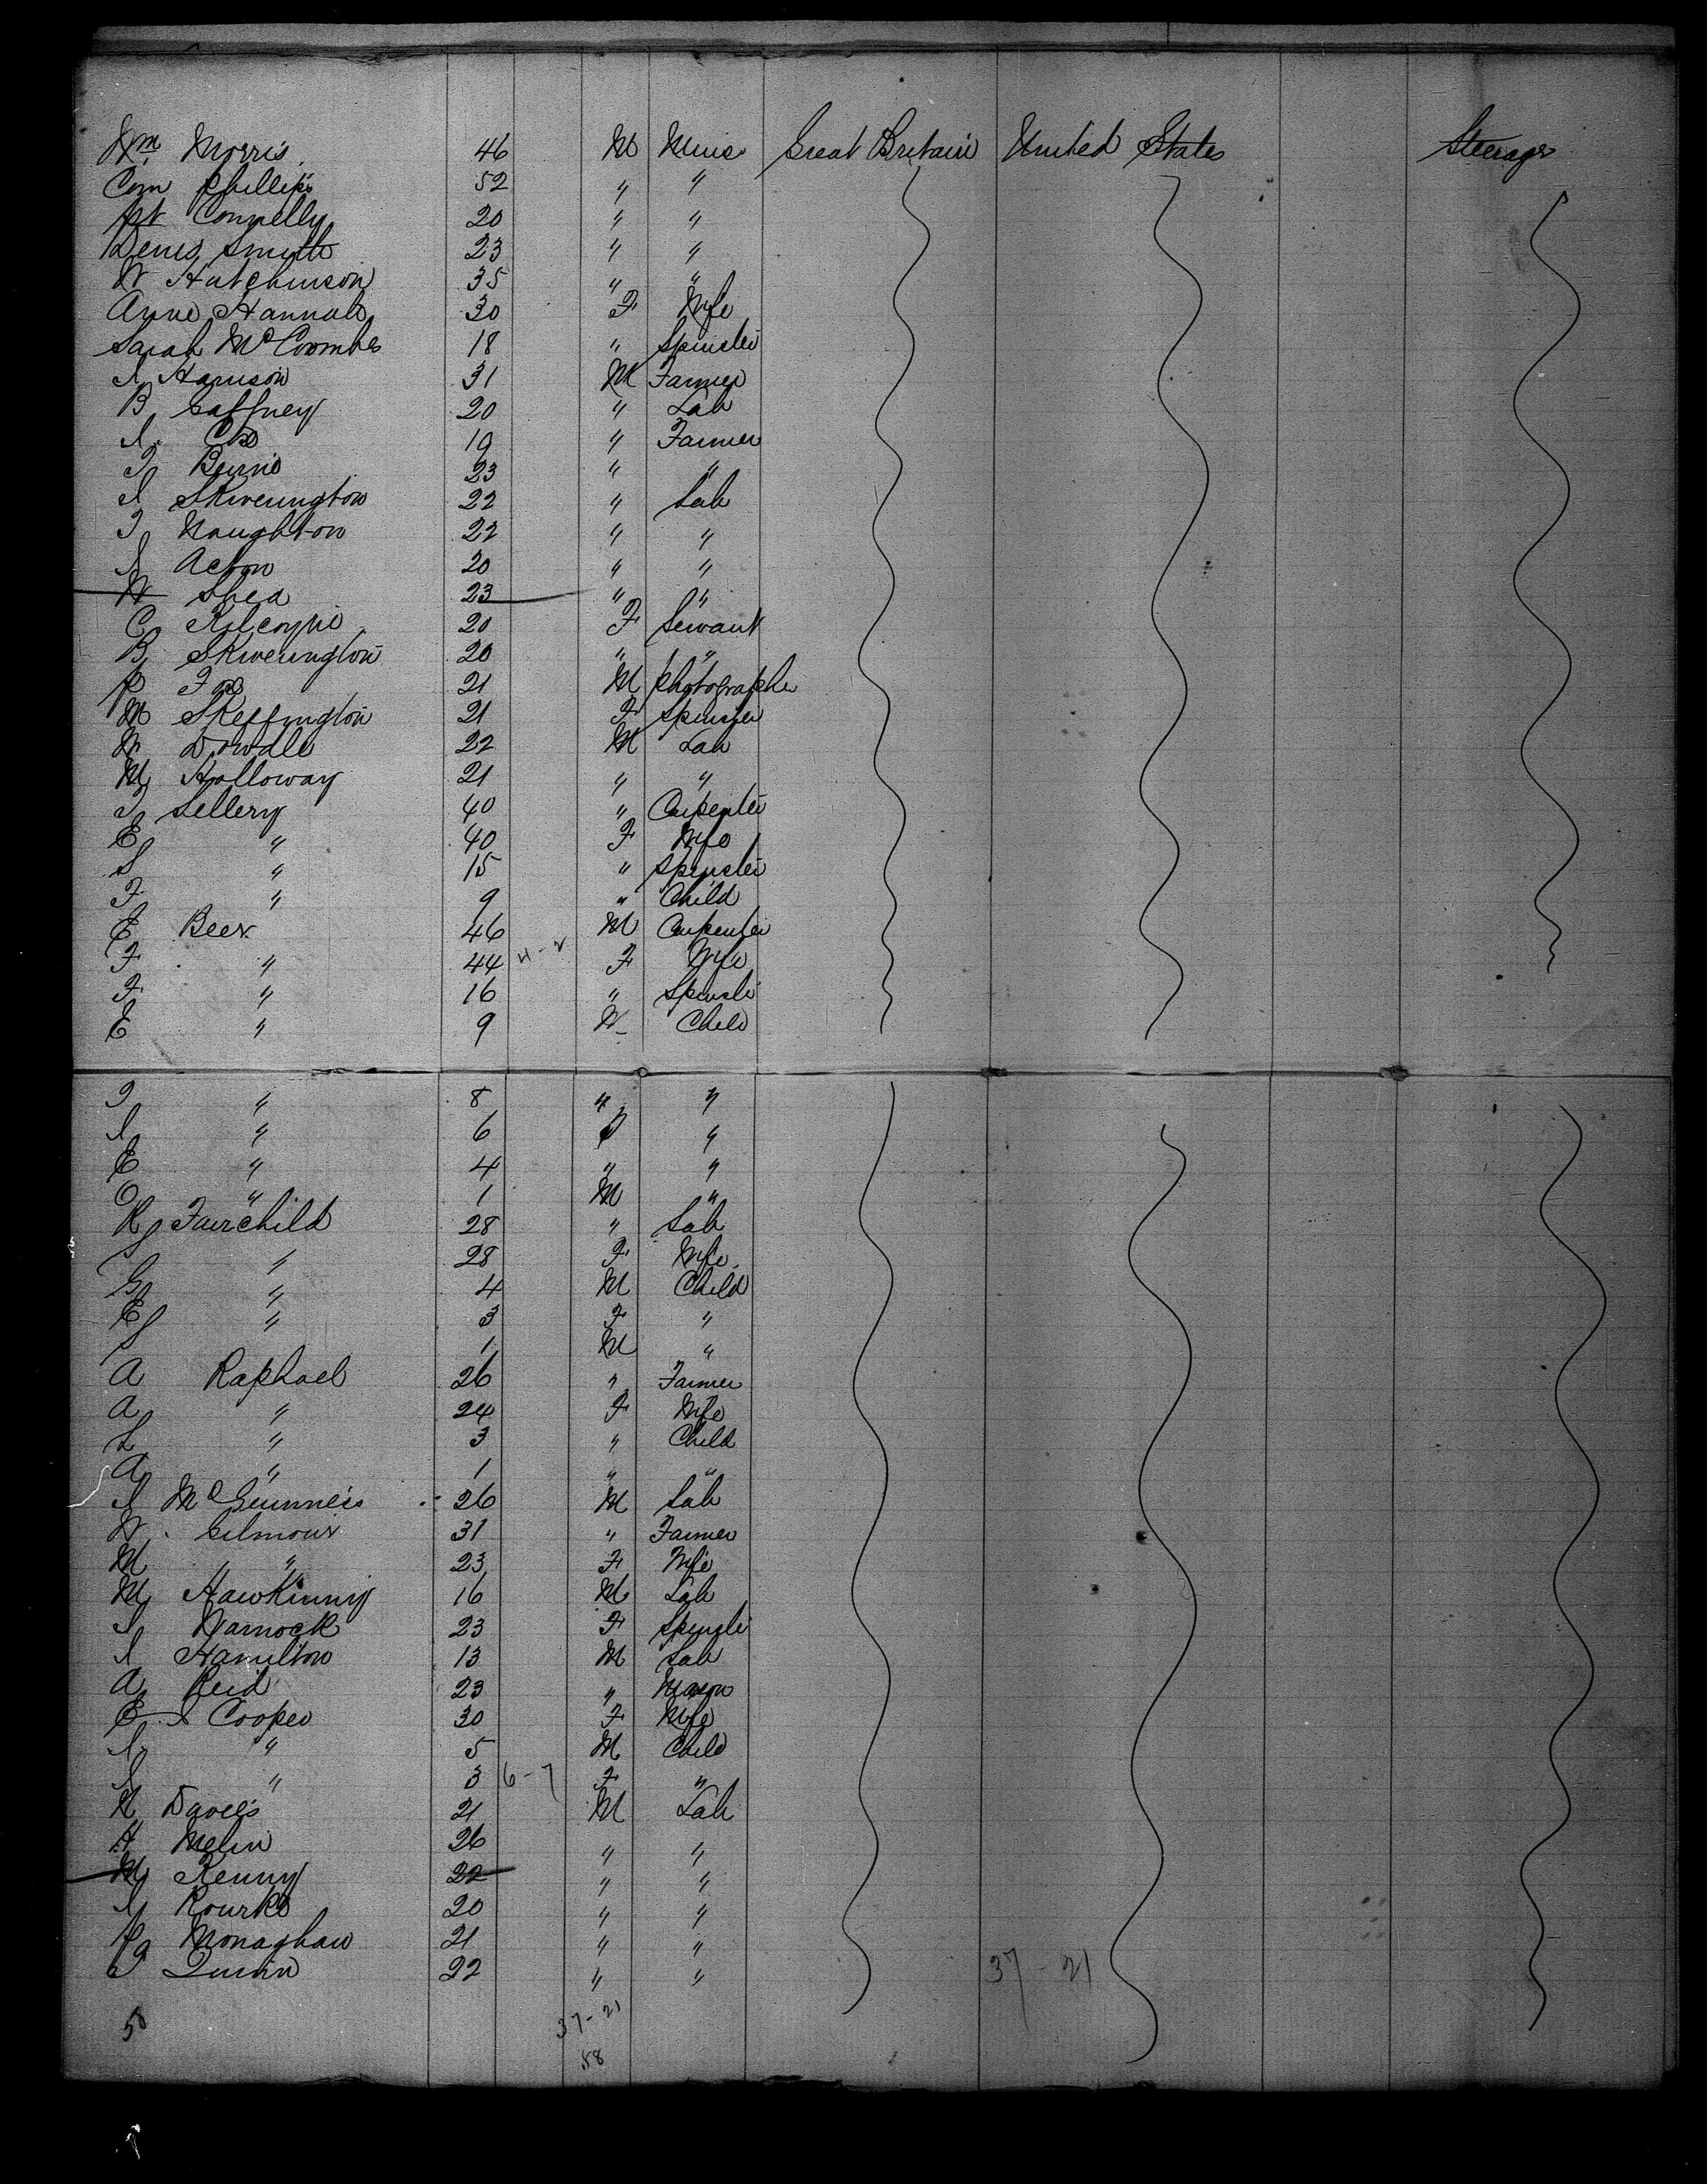 Wm Morris 46 M Mine Great Britain United States Steerage
Corn Phillips 52 " "
Pt Connelly 20 " "
Denis Smith 23 " "
W Hutchinson 35 " "
Anne Hannah 30 F Wife
Sarah McCoombes 18 " Spinster
J Harrison 31 M Farmer
B Gaffney 20 " Lab
J Cox 19 " Farmer
T Burns 23 " "
J Skivenington 22 " Lab
T Naughton 22 " "
J Acton 20 " "
W Shea 23 " "
C Kilcoyne 20 F Servant
B Skivenington 20 " "
P Fox 21 M Photographe
M Skeffington 21 F Spinster
W Dowdle 22 M Lab
M Holloway 21 " "
T Sellery 40 " Carpenter
E " 40 F Wife
S " 15 " Spinster
F " 9 " Child
E Beer 46 M Carpenter
F " 44 4-2 F Wife
F " 16 " Spinster
E " 9 M Child
T " 8 " "
J " 6 F "
E " 4 " "
O " 1 M "
R Fairchild 28 " Lab
S " 28 F Wife
G " 4 M Child
E " 3 F "
S " 1 M "
A Raphael 26 " Farmer
A " 24 F Wife
L " 3 " Child
A " 1 " "
J McGuinness 26 M Lab
W Gilmour 31 " Farmer
M " 23 F Wife
M Hawkinny 16 M Lab
J Warnock 23 F Spinster
J Hamilton 13 M Lab
A Reid 23 " Mason
E J Cooper 30 F Wife
J " 5 M Child
J " 3 6-7 F "
H Davies 21 M Lab
H Melin 26 " "
M Kenny 22 " "
J Rourke 20 " "
Monaghan 21 " "
T Quinn 22 " " 37-21
37-21
58